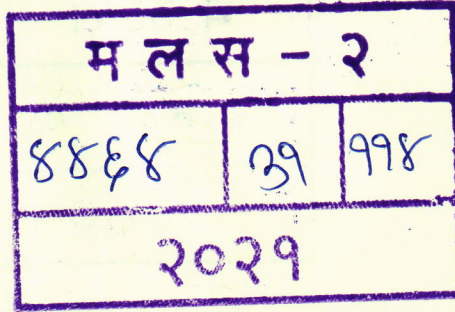 मलस - २
४४६४ ३१ ११४
२०२१